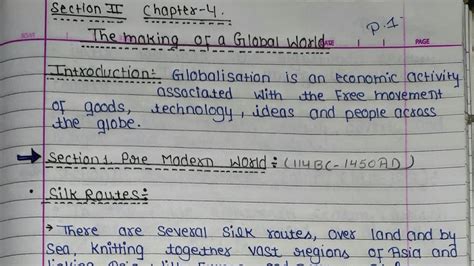 Section II Chapter-4. P.1
The making of a Global World
PAGE
Introduction:- Globalisation is an Economic activity
associated with the Free movement
of goods, technology, ideas and people across
the globe.
Section 1. Pre Modern World: (114BC-1450AD)
• Silk Routes:
→ There are several silk routes, over land and by
sea, knitting together vast regions of Asia and